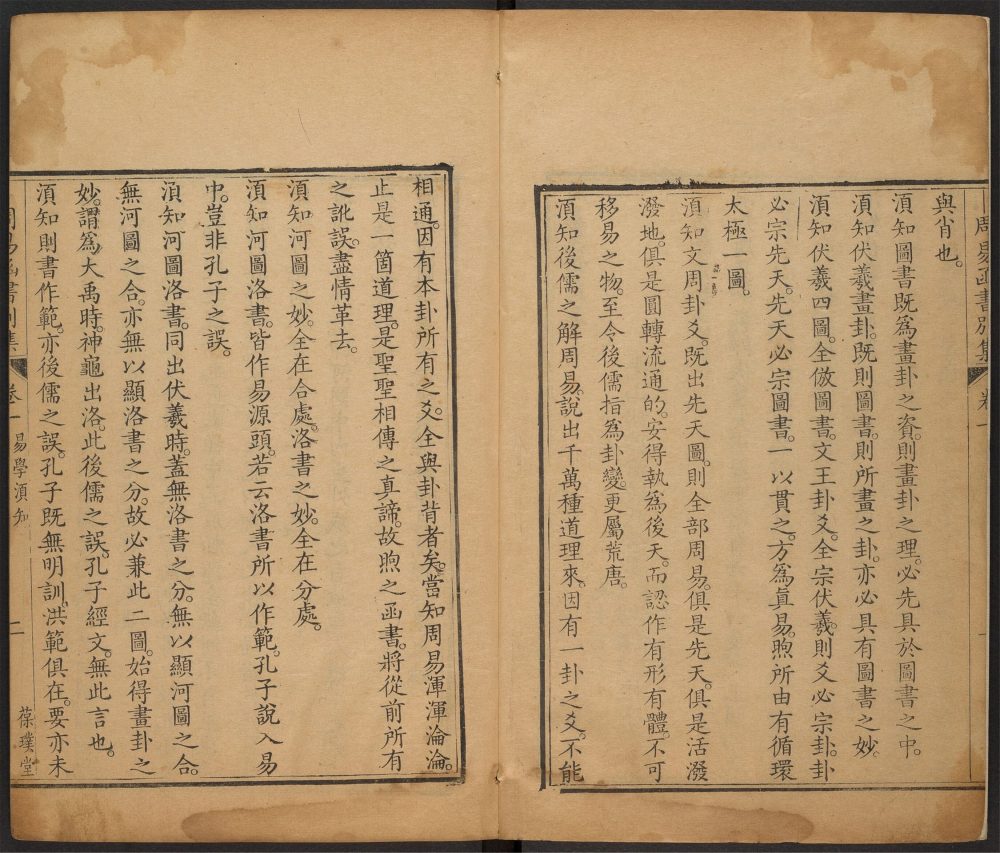 周易函書別集
卷一
一
與肖也。
須知圖書既爲畫卦之資。則畫卦之理。必先具於圖書之中。
須知伏羲畫卦。既則圖書。則所畫之卦。亦必具有圖書之妙。
須知伏羲四圖。全倣圖書。文王卦爻。全宗伏羲。則爻必宗卦。卦
必宗先天。先天必宗圖書。一以貫之。方爲眞易。煦所由有循環
太極一圖。
須知文周卦爻。既出先天圖。則全部周易。俱是先天。俱是活潑
潑地。俱是圓轉流通的。安得執爲後天。而認作有形有體。不可
移易之物。至令後儒指爲卦變。更屬荒唐。
須知後儒之解周易。說出千萬種道理來。因有一卦之爻。不能
相通。因有本卦所有之爻。全與卦背者矣。當知周易渾渾淪淪。
止是一箇道理。是聖聖相傳之真諦。故煦之函書。將從前所有
之訛誤。盡情革去。
須知河圖之妙。全在合處。洛書之妙。全在分處。
須知河圖洛書。皆作易源頭。若云洛書所以作範。孔子說入易
中。豈非孔子之誤。
須知河圖洛書。同出伏羲時。蓋無洛書之分。無以顯河圖之合。
無河圖之合。亦無以顯洛書之分。故必兼此二圖。始得畫卦之
妙。謂爲大禹時。神龜出洛。此後儒之誤。孔子經文。無此言也。
須知則書作範。亦後儒之誤。孔子既無明訓。洪範俱在。要亦未
周易函書別集
卷一
易學須知
二
葆璞堂